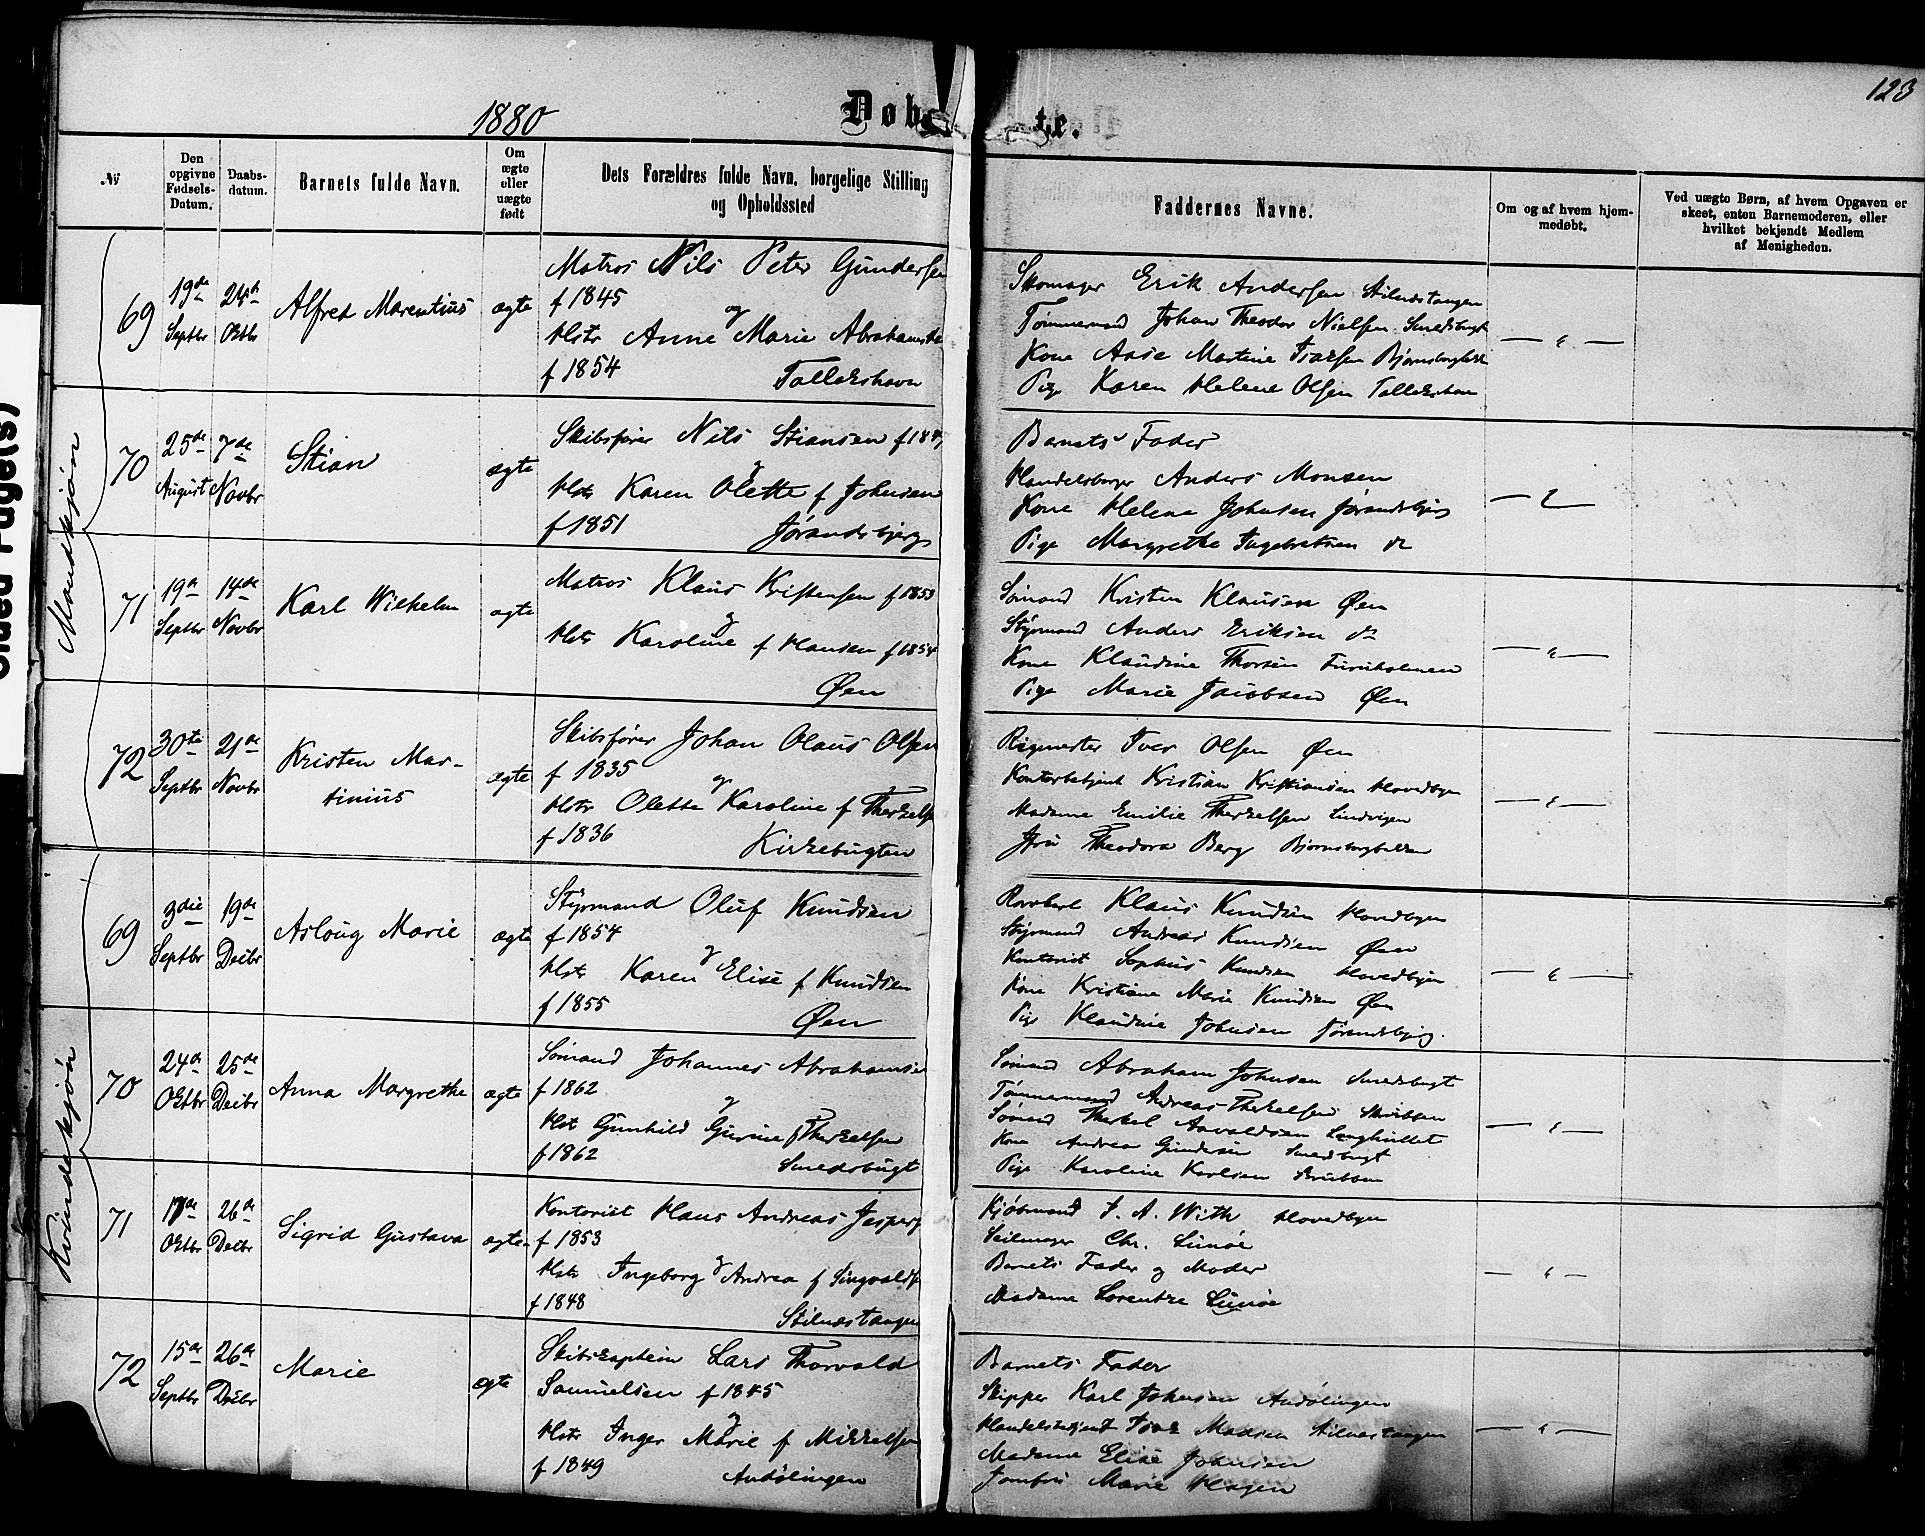 123
1880
Døbte.
№
Den opgivne Fødsels-Datum.
Daabs-datum.
Barnets fulde Navn.
Om ægte eller uægte født
Dets Forældres fulde Navn, borgelige Stilling og Opholdssted
Faddernes Navne.
Om og af hvem hjem-medøbt.
Ved uægte Børn, af hvem Opgaven er skeet, enten Barnemoderen, eller hvilket bekjendt Medlem af Menigheden.
Mandkjøn
69
19de Septbr
24d Oktbr
Alfred Marentius
ægte
Matros Nils Peter Gundersen
f 1845
og
Hstr Anne Marie Abrahamsen
f 1854 Tallakshavn
Skomager Erik Andersen Stilnæstangen
Tømmermand Johan Theodor Nielsen Smedsbugt
Kone Aase Martine Isaksen Bjørnsborgbakk
Pige Karen Helene Olsen Tallakshavn
— " —
70
25de August
7de Novbr
Stian
ægte
Skibsfører Nils Stiansen
og
Hstr Karen Olette f Johnsen
f 1851 Jørandsbjerg
Barnets Fader
Handelsborger Anders Monsen
Kone Helene Johnsen Jørandsbjerg
Pige Margrethe Ingebretsen do
— " —
71
19d Septbr
14de Novbr
Karl Wilhelm
ægte
Matros Klaus Kristensen f 1853
og
Hstr Karoline f Hansen f 1854
Øen
Sømand Kristen Klausen Øen
Styrmand Anders Eriksen do
Kone Klaudine Thorsen Furuholmen
Pige Marie Jacobsen Øen
— " —
72
30te Septbr
21de Novbr
Kristen Mar-
tinius
ægte
Skibsfører Johan Olaus Olsen
f 1835
og
Hstr Olette Karoline f Therkels
f 1836 Kirkebugten
Rigmester Iver Olsen Øen
Kontorbetjent Kristian Kristiansen Hovedbyen
Madame Emilie Therkelsen Lindvigen
Fru Theodora Berg Bjørnsborgbakken
— " —
Kvindekjøn
69
3die Septbr
19de Decbr
Asloug Marie
ægte
Styrmand Oluf Knudsen
f 1854
og
Hstr Karen Elise f Knudsen
f 1855 Øen
Klaus Knudsen Hovedbyen
Styrmand Andreas Knudsen Øen
Kontorist Sophus Knudsen Hovedbyen
Kone Kristiane Marie Knudsen Øen
Pige Klaudine Johnsen Jørandsbjerg.
— " —
70
24d Oktbr
25de Decbr
Anna Margrethe
ægte
Sømand Johannes Abrahamsen
f 1862
og
Hstr Gunhild Gurine f Therkelsen
f 1862 Smedsbugt
Sømand Abraham Johnsen Smedsbugt
Tømmermand Andreas Therkelsen
Sømand Therkel Aavaldsen
Kone Andrea Gundersen Smedsbugt
Pige Karoline Karlsen
— " —
71
17de Oktbr
26de Decbr
Sigrid Gustava
ægte
Kontorist Hans Andreas Jespers
f 1853
og
Hstr Ingeborg Andrea f Syvaldse
f 1848
Stilnæstangen
Kjøbmand J. A. With Hovedbyen
Seilmager Chr. Lunøe
Barnets Fader og Moder
Madame Lorentze Lunøe
— " —
72
15de Septbr
26de Decbr
Marie
ægte
Skibskaptein Lars Thorvald
Samuelsen f 1845
og
Hstr Inger Marie f Mikkelsen
f 1849 Andølingen
Barnets Fader
Skipper Karl Johnsen Andølingen
Handelsbetjent Isak Madsen Stilnæstangen
Madame Elise Johnsen
Jomfru Marie Hagen
— " —